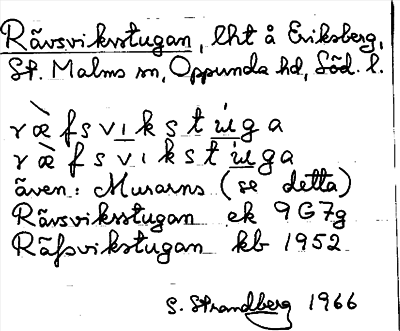 Rävsvikvstugan, lht å Eriksberg,
St. Malms sn, Oppunda hd, Söd. l.
ræ̀fsvikstúga
ræ̀fsvikstúga
även: Murarns (se detta)
Rävsviksstugan ek 9G7g
Räfsvikstugan kb 1952
S. Strandberg 1966